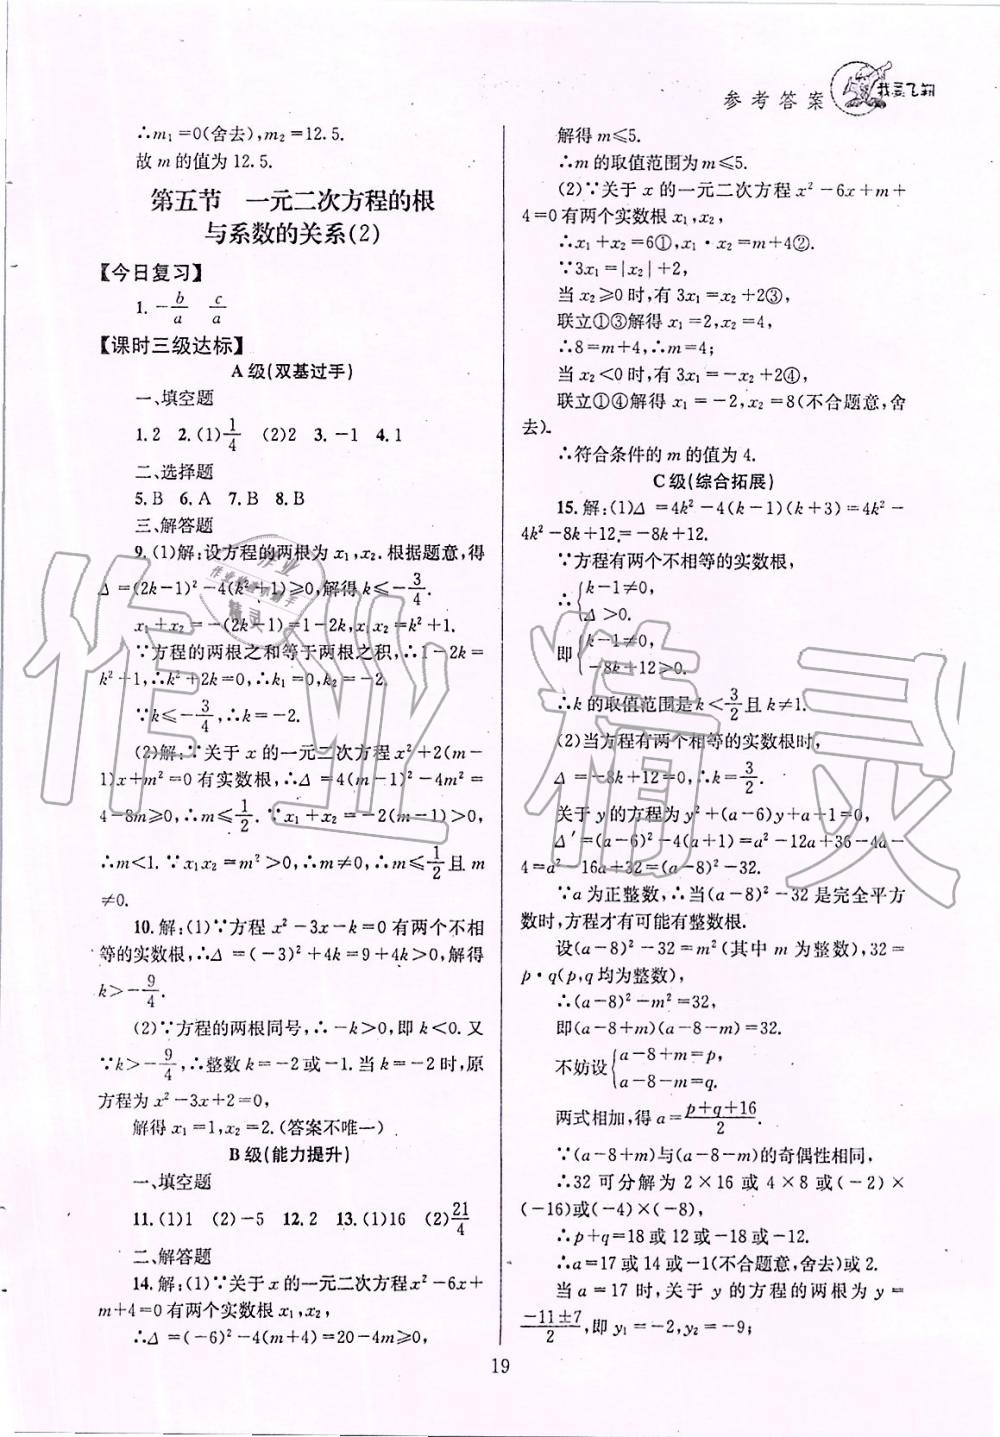 参考答案
我要飞翔
∴m₁=0(舍去),m₂=12.5.
故 m 的值为 12.5.
第五节 一元二次方程的根
与系数的关系(2)
【今日复习】
1. -b/a c/a
【课时三级达标】
A 级(双基过手)
一、填空题
1. 2 2. (1)1/4 (2)2 3. -1 4. 1
二、选择题
5. B 6. A 7. B 8. B
三、解答题
9. (1)解:设方程的两根为 x₁,x₂. 根据题意,得
Δ=(2k-1)²-4(k²+1)≥0,解得 k≤-3/4.
x₁+x₂=-(2k-1)=1-2k,x₁x₂=k²+1.
∵方程的两根之和等于两根之积,∴1-2k=
k²+1,∴k²+2k=0,∴k₁=0,k₂=-2.
∵k≤-3/4,∴k=-2.
(2)解:∵关于 x 的一元二次方程 x²+2(m-
1)x+m²=0 有实数根,∴Δ=4(m-1)²-4m²=
4-8m≥0,∴m≤1/2. ∵x₁+x₂=-2(m-1)>0,
∴m<1. ∵x₁x₂=m²>0,∴m≠0,∴m≤1/2且 m
≠0.
10. 解:(1)∵方程 x²-3x-k=0 有两个不相
等的实数根,∴Δ=(-3)²+4k=9+4k>0,解得
k>-9/4.
(2)∵方程的两根同号,∴-k>0,即 k<0. 又
∵k>-9/4,∴整数 k=-2 或-1. 当 k=-2 时,原
方程为 x²-3x+2=0,
解得 x₁=1,x₂=2. (答案不唯一)
B 级(能力提升)
一、填空题
11. (1)1 (2)-5 12. 2 13. (1)16 (2)21/4
二、解答题
14. 解:(1)∵关于 x 的一元二次方程 x²-6x+
m+4=0 有两个实数根 x₁,x₂,
∴Δ=(-6)²-4(m+4)=20-4m≥0,
解得 m≤5.
∴m 的取值范围为 m≤5.
(2)∵关于 x 的一元二次方程 x²-6x+m+
4=0 有两个实数根 x₁,x₂,
∴x₁+x₂=6①,x₁·x₂=m+4②.
∵3x₁=|x₂|+2,
当 x₂≥0 时,有 3x₁=x₂+2③,
联立①③解得 x₁=2,x₂=4,
∴8=m+4,∴m=4;
当 x₂<0 时,有 3x₁=-x₂+2④,
联立①④解得 x₁=-2,x₂=8(不合题意,舍
去).
∴符合条件的 m 的值为 4.
C 级(综合拓展)
15. 解:(1)Δ=4k²-4(k-1)(k+3)=4k²-
4k²-8k+12=-8k+12.
∵方程有两个不相等的实数根,
∴{k-1≠0,
Δ>0.
即{k-1≠0,
-8k+12>0.
∴k 的取值范围是 k<3/2且 k≠1.
(2)当方程有两个相等的实数根时,
Δ=-8k+12=0,∴k=3/2.
关于 y 的方程为 y²+(a-6)y+a+1=0,
Δ′=(a-6)²-4(a+1)=a²-12a+36-4a-
4=a²-16a+32=(a-8)²-32.
∵a 为正整数,∴当(a-8)²-32 是完全平方
数时,方程才有可能有整数根.
设(a-8)²-32=m²(其中 m 为整数),32=
p·q(p,q均为整数),
∴(a-8)²-m²=32,
即(a-8+m)(a-8-m)=32.
不妨设{a-8+m=p,
a-8-m=q.
两式相加,得 a=(p+q+16)/2.
∵(a-8+m)与(a-8-m)的奇偶性相同,
∴32 可分解为 2×16 或 4×8 或(-2)×
(-16)或(-4)×(-8),
∴p+q=18 或 12 或-18 或-12.
∴a=17 或 14 或-1(不合题意,舍去)或 2.
当 a=17 时,关于 y 的方程的两根为 y=
(-11±7)/2,即 y₁=-2,y₂=-9;
19
作业精灵